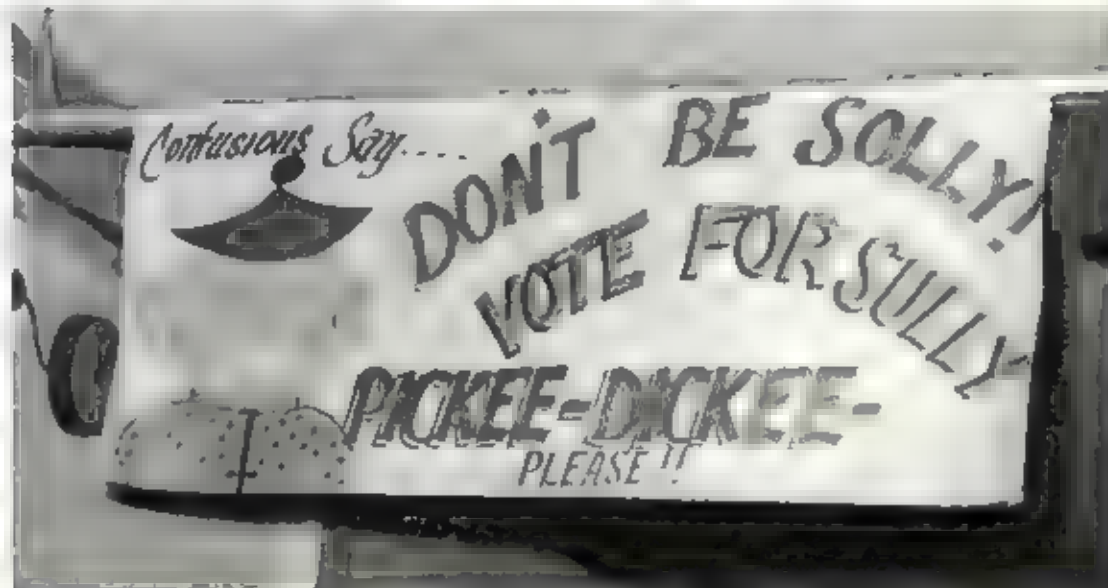 Confusions Say.....
DON'T BE SOLLY!
VOTE FOR SULLY-
PICKEE-DICKEE-
PLEASE!!